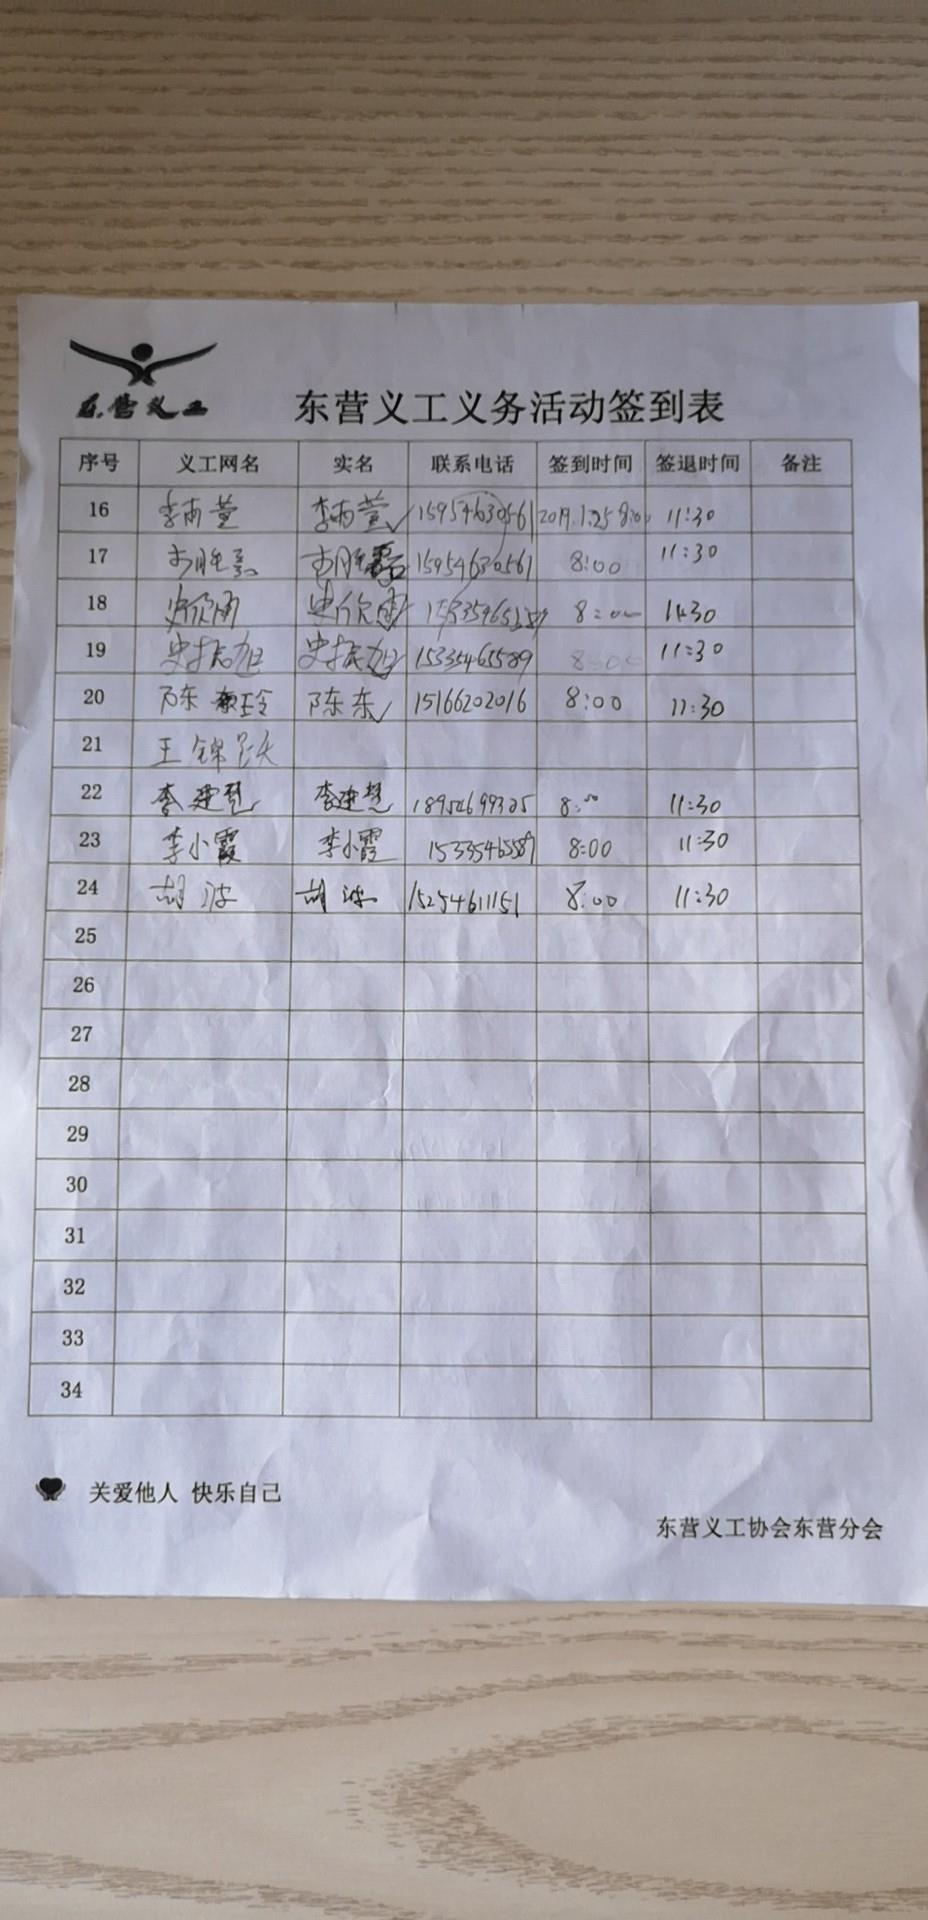 东营义工
东营义工义务活动签到表
序号 义工网名 实名 联系电话 签到时间 签退时间 备注
16 李雨萱 李雨萱✓ 15954630561 2019.1.25 8:00 11:30
17 15954630561 8:00 11:30
18 史欣雨 史欣雨 8:00 11:30
19 史振旭 史振旭 15335465589 8:00 11:30
20 陈东 陈东✓ 15166202016 8:00 11:30
21 王锦跃
22 李建慧 李建慧 18954699325 8:00 11:30
23 李小霞 李小霞 15335465589 8:00 11:30
24 胡波 胡波 15254611151 8:00 11:30
25
26
27
28
29
30
31
32
33
34
关爱他人 快乐自己
东营义工协会东营分会